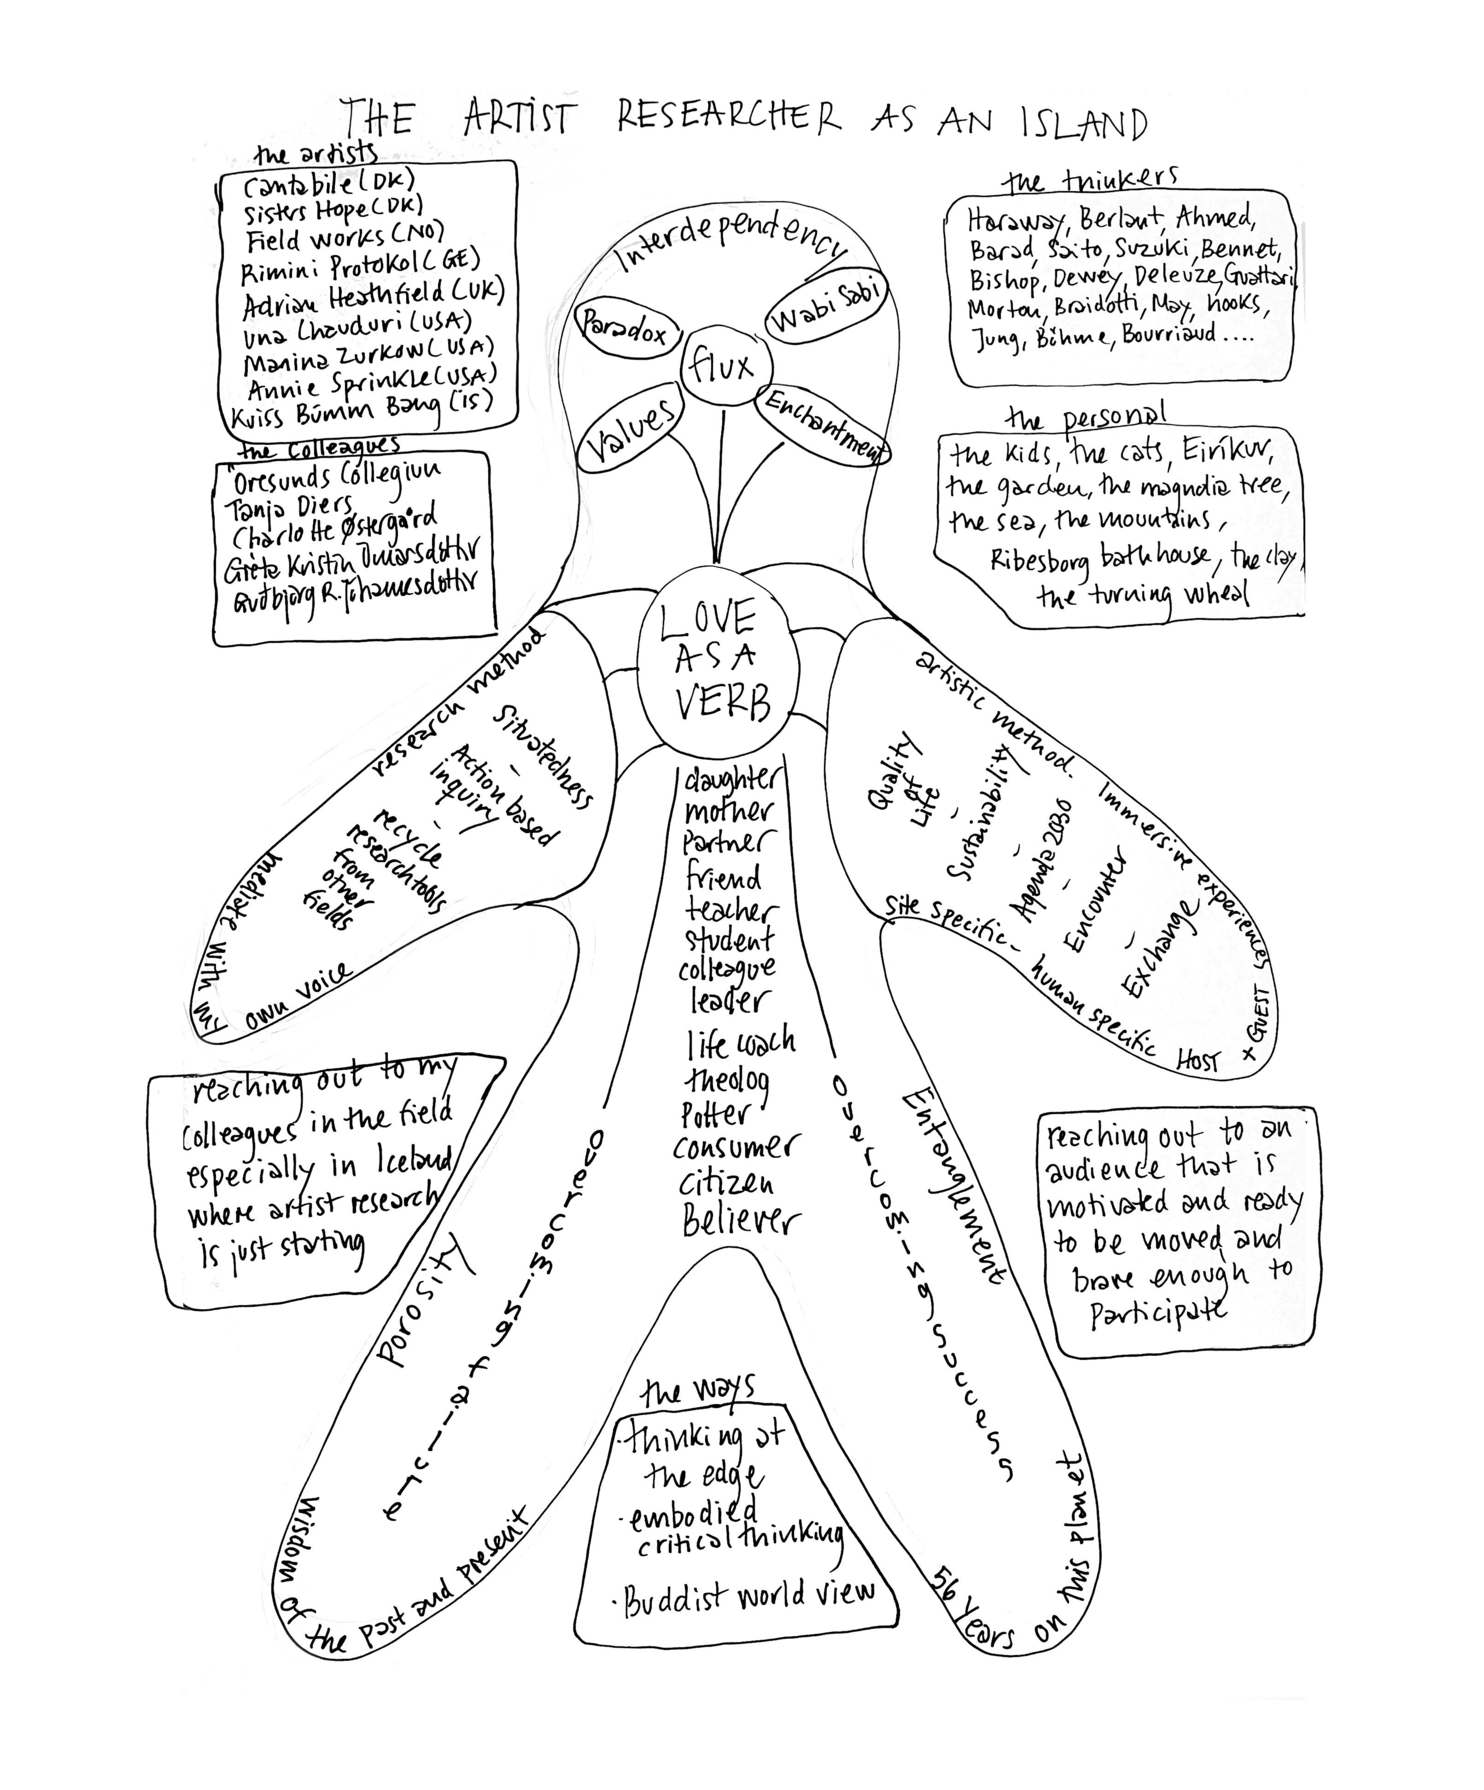 THE ARTIST RESEARCHER AS AN ISLAND
the artists
Cantabile (DK)
Sisters Hope (DK)
Field works (NO)
Rimini Protokol (GE)
Adrian Heathfield (UK)
Una Chauduri (USA)
Marina Zurkow (USA)
Annie Sprinkle (USA)
Kviss Búmm Bang (is)
the Colleagues
Oresunds Collegium
Tanja Diers
Charlotte Østergård
Gréta Kristín Ómarsdóttir
Guðbjörg R. Jóhannesdóttir
the thinkers
Haraway, Berlant, Ahmed,
Barad, Saito, Suzuki, Bennet,
Bishop, Dewey, Deleuze, Guattari
Morton, Braidotti, May, hooks,
Jung, Böhme, Bourriaud ....
the personal
the kids, the cats, Eiríkur,
the garden, the magnolia tree,
the sea, the mountains,
Ribesborg bathhouse, the clay,
the turning wheel
Interdependency
Paradox
Wabi Sabi
flux
Values
Enchantment
LOVE
AS A
VERB
research method
Situatedness
-
Action based
inquiry
-
recycle
research tools
from
other
fields
mediate with my
own voice
artistic method.
Immersive experiences
Quality
of
Life
-
Sustainability
-
Agenda 2030
-
Encounter
-
Exchange
Site specific -
human specific
HOST
x GUEST
daughter
mother
partner
friend
teacher
student
colleague
leader
life coach
theolog
Potter
consumer
citizen
Believer
reaching out to my
colleagues in the field
especially in Iceland
where artist research
is just starting
reaching out to an
audience that is
motivated and ready
to be moved and
brave enough to
Participate
Porosity
overcoming failure
Wisdom of the past and present
overcoming success
Entanglement
56 Years on this planet
the ways
· thinking at
the edge
· embodied
critical thinking
· Buddist world view